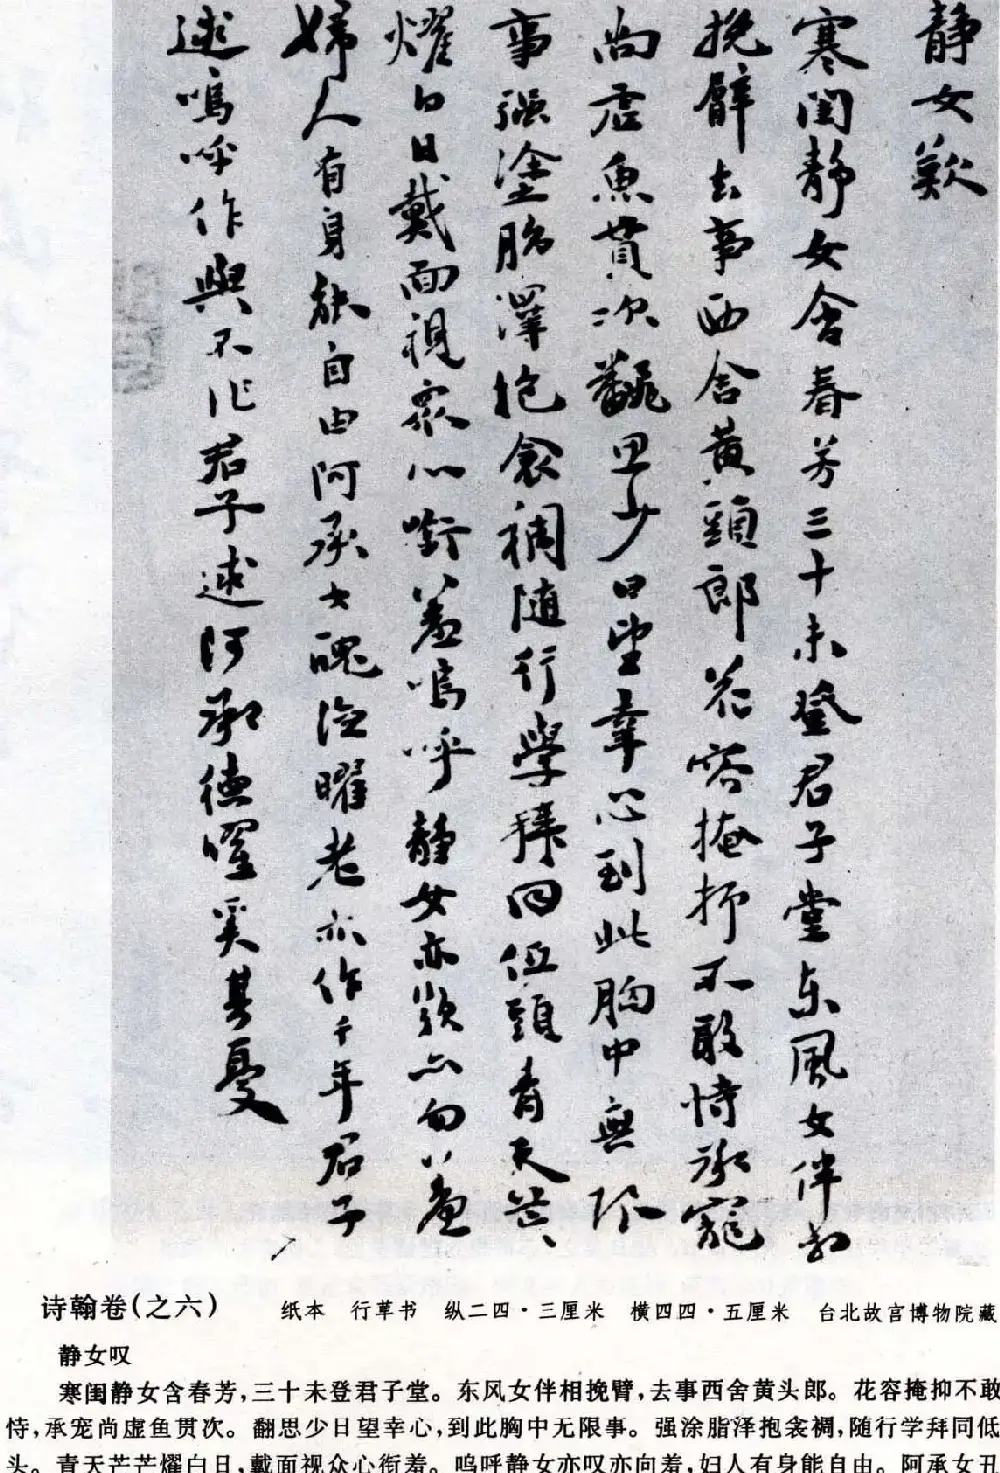 静女歎
寒閨静女含春芳三十未登君子堂東風女伴相
挽臂去事西舍黄頭郎花容掩抑不敢恃承寵
尚虚魚貫次翻思少日望幸心到此胸中無限
事强塗脂澤抱衾裯随行學拜同低頭青天芒、
燿白日戴面視衆心銜羞嗚呼静女亦歎亦向羞
婦人有身能自由阿承女醜德曜老亦作千年君子
逑嗚呼作與不作君子逑阿承德曜奚其憂
诗翰卷(之六) 纸本 行草书 纵二四·三厘米 横四四·五厘米 台北故宫博物院藏
静女叹
寒闺静女含春芳,三十未登君子堂。东风女伴相挽臂,去事西舍黄头郎。花容掩抑不敢
恃,承宠尚虚鱼贯次。翻思少日望幸心,到此胸中无限事。强涂脂泽抱衾裯,随行学拜同低
头。青天芒芒燿白日,戴面视众心衔羞。呜呼静女亦叹亦向羞,妇人有身能自由。阿承女丑